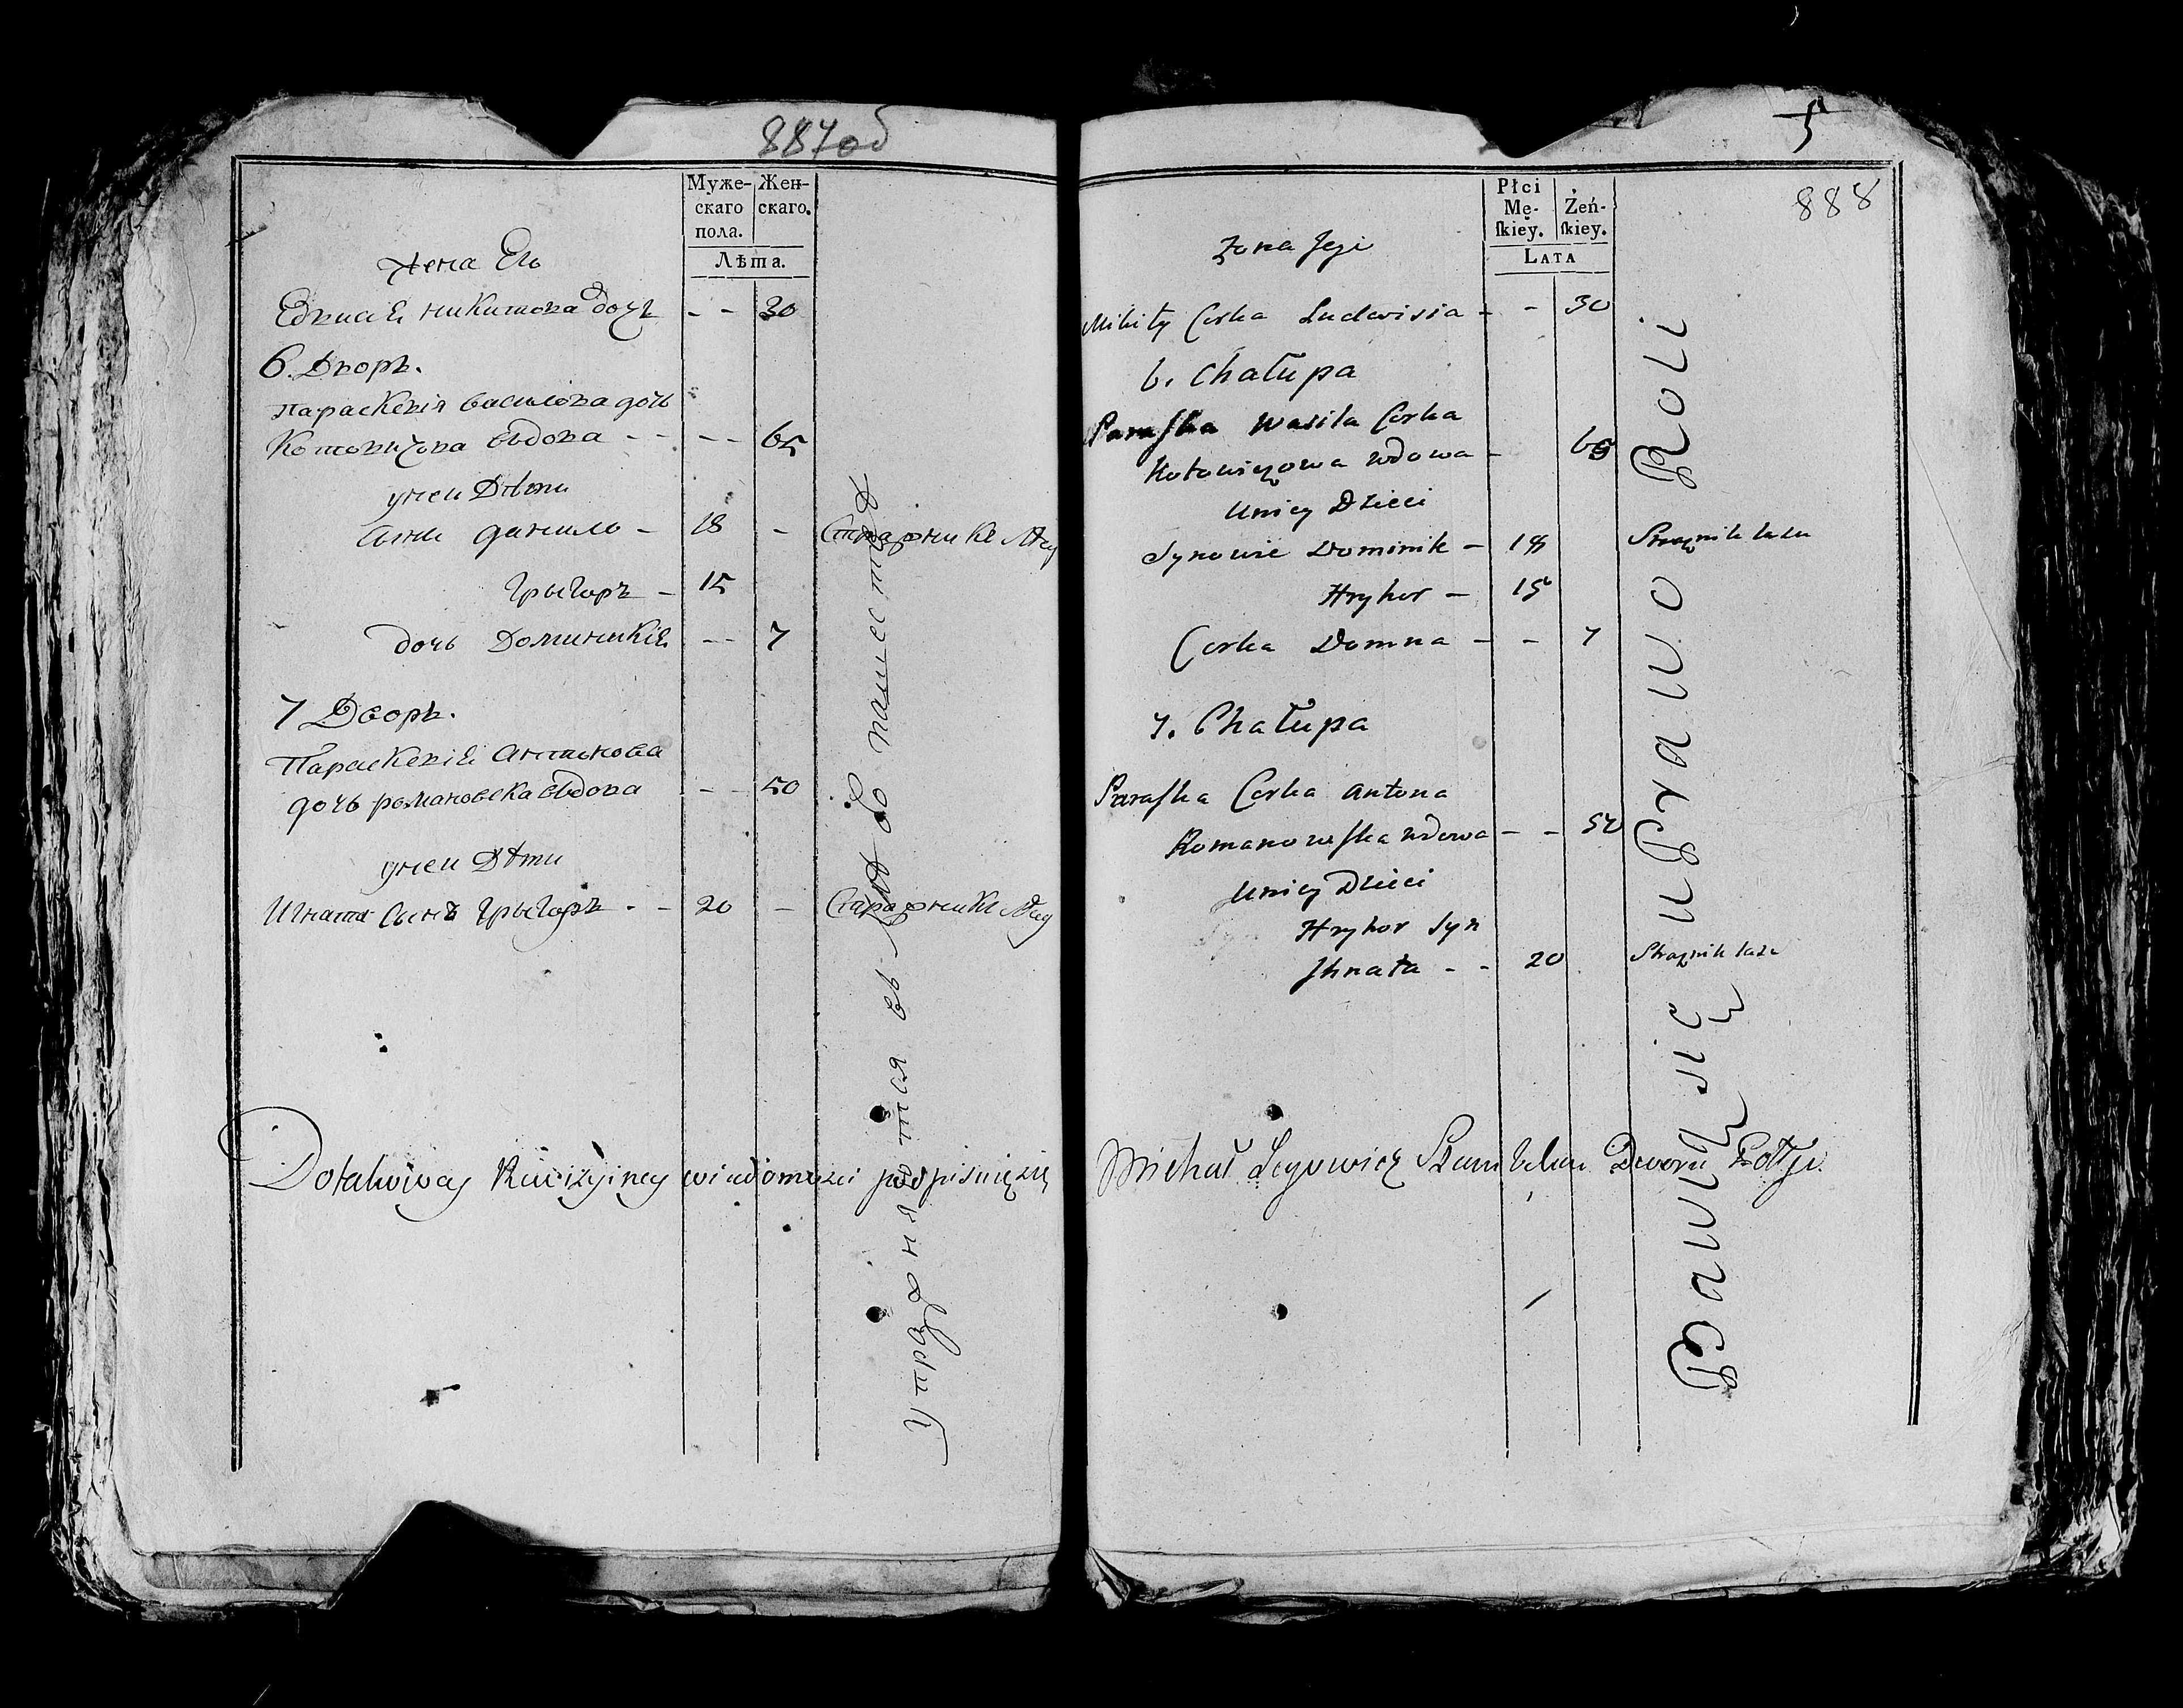 887об
Муже-
скаго
пола.
Жен-
скаго.
Лѣта.
Жена Ево
никитова дочь - - 30
6. Дворъ.
Параскевiя василова дочь
Котовичова вдова - - - - 65
у неи Дѣти
Сыны данило - 18 -
Грыгоръ - 15
дочь Доминикiя - - 7
7 Дворъ.
Параскевiя Антонова
дочь романовска вдова - - 50
у неи Дѣти
Игната Сынъ Грыгоръ - - 20 -
упражняются въ хлебопашестве
Do takowey Rewizyiney wiadomości podpisuię się
5
888
Płci
Mę-
ſkiey.
Żeń-
ſkiey.
Lata
Żona Jego
Mikity Corka Ludwisia - - 30
6. Chałupa
Paraſka Wasila Corka
Kotowiczowa wdowa - 65
U niey Dzieci
Synowie Dominik - 18 Strażnik lasu
Hryhor - 15
Corka Domna - - 7
7. Chałupa
Paraſka Corka Antona
Romanowſka wdowa - - 50
U niey Dzieci
Hryhor Syn
Jhnata - - 20 Strażnik lasu
Bawią się uprawo Roli
Michał Szambelan Dworu